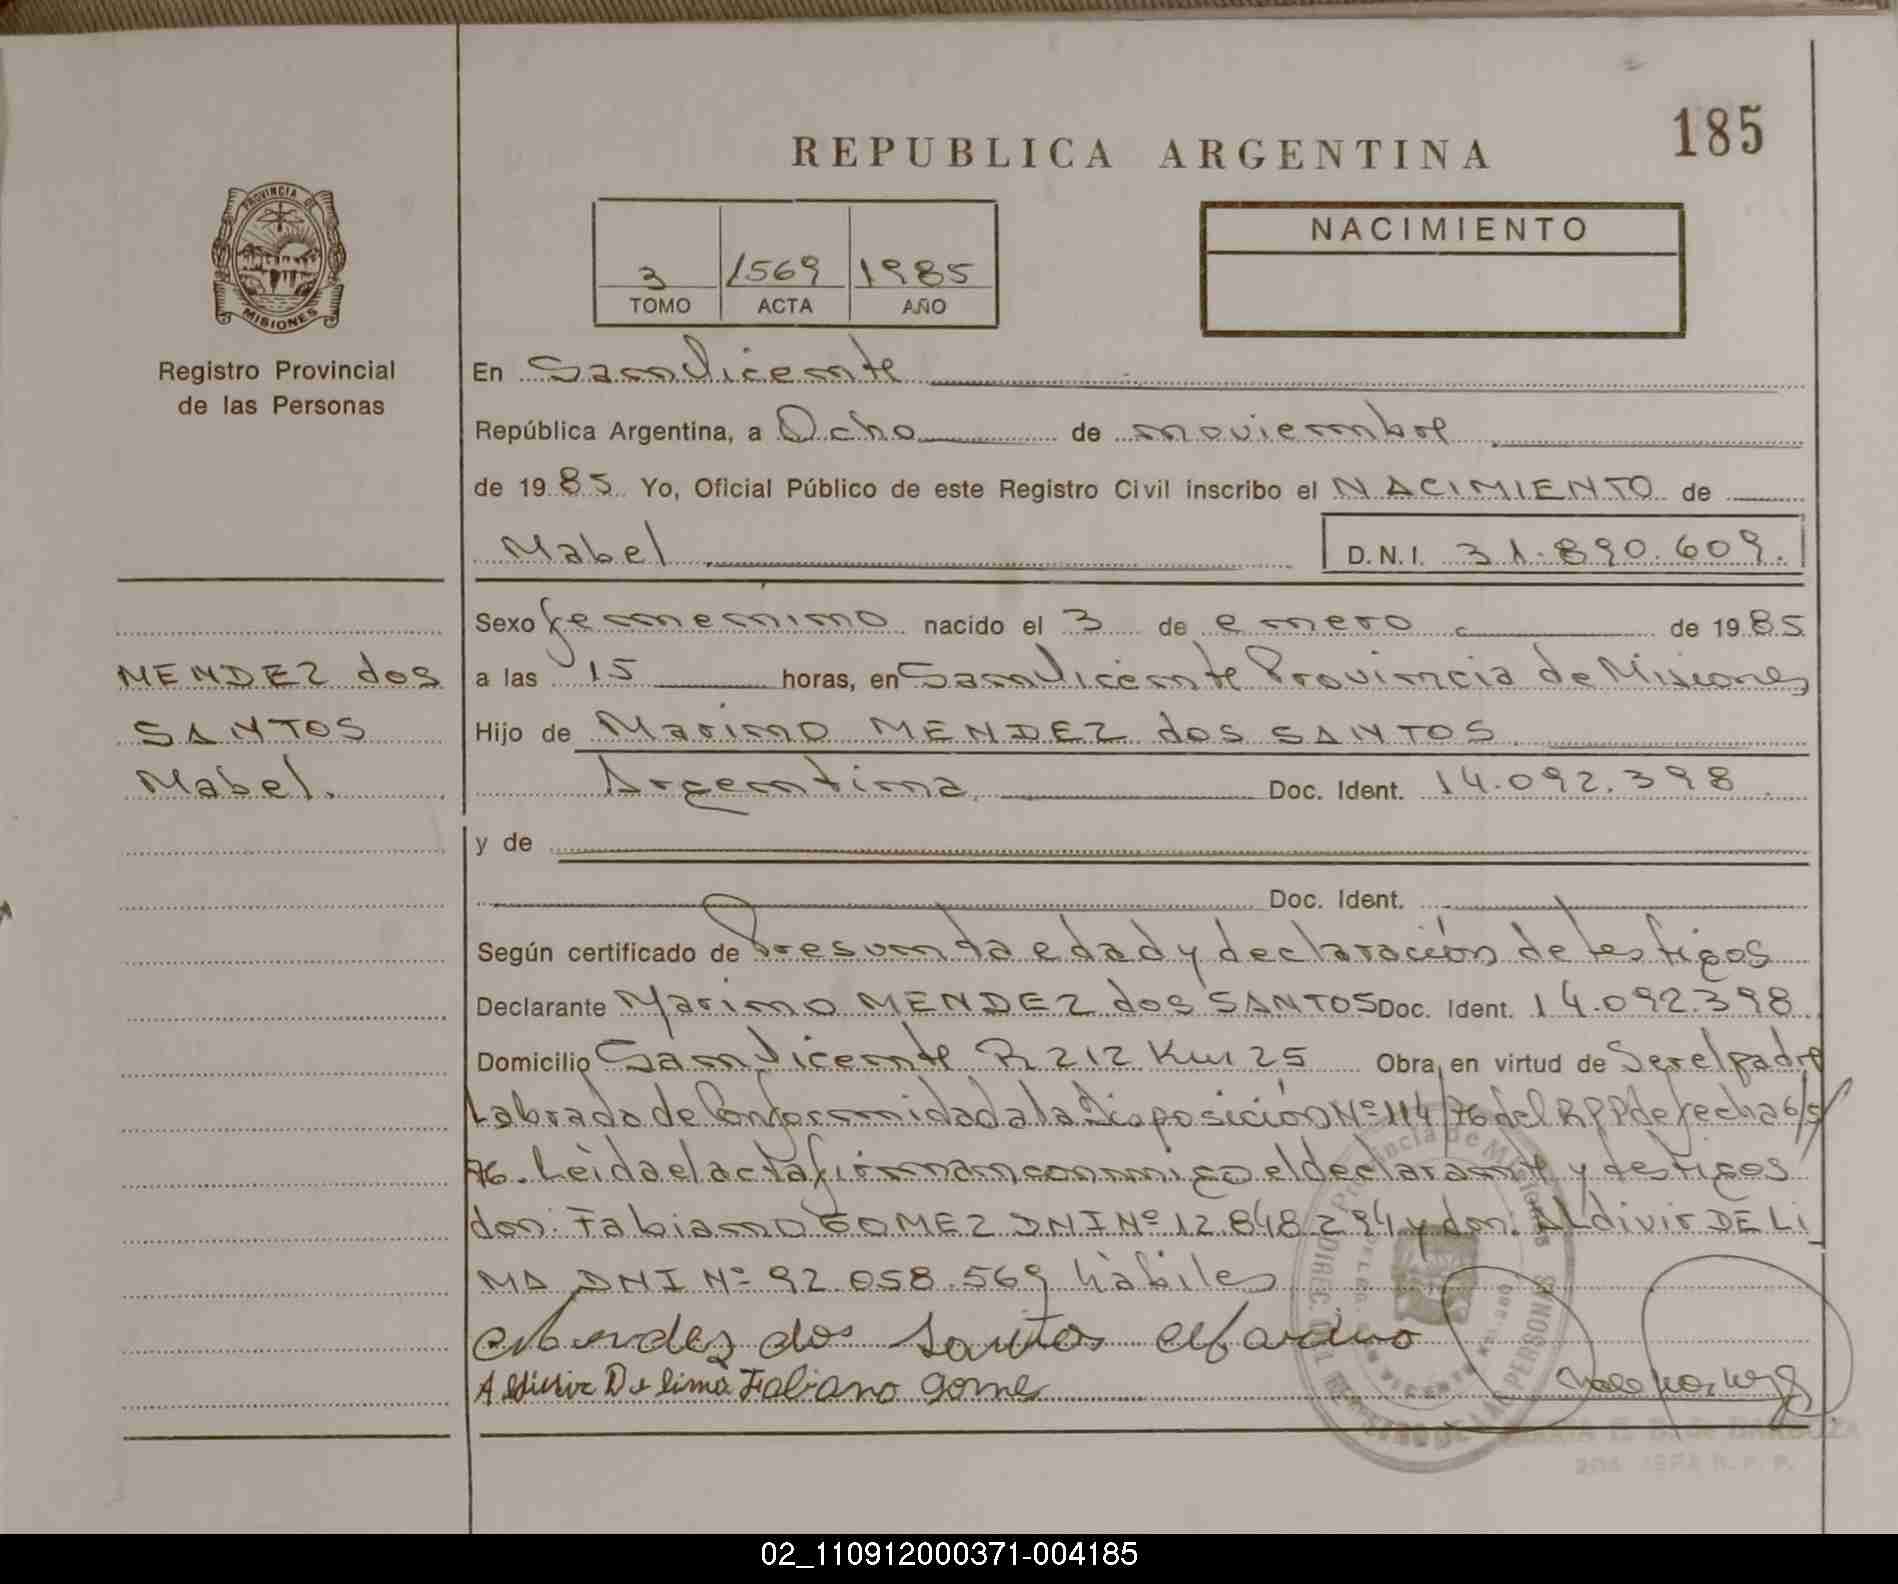 185
REPUBLICA ARGENTINA
PROVINCIA DE
MISIONES
Registro Provincial
de las Personas
3 1569 1985
TOMO ACTA AÑO
NACIMIENTO
En San Vicente
República Argentina, a Ocho de noviembre
de 19 85 Yo, Oficial Público de este Registro Civil inscribo el NACIMIENTO de
Mabel D.N.I. 31.890.609.
MENDEZ dos
SANTOS
Mabel.
Sexo femenino nacido el 3 de enero de 19 85
a las 15 horas, en San Vicente Provincia de Misiones
Hijo de Marino MENDEZ dos SANTOS
Argentina. Doc. Ident. 14.092.398
y de
Doc. Ident.
Según certificado de Presunta edad y declaración de testigos
Declarante Marino MENDEZ dos SANTOS Doc. Ident. 14.092.398
Domicilio San Vicente R 212 Km 25 Obra, en virtud de Ser el padre
Labrada de Conformidad a la Disposición Nº 114/76 del R P P de fecha 6/5/
76. Leida el acta firman conmigo el declarante y testigos
don: Fabiano GOMEZ DNI Nº 12.848.294 y don: ALdivir DE LI
MA DNI Nº 92.058.569 hábiles
Mendez dos Santos Marino
Aldivir De lima Fabiano gomes
Provincia de Misiones
02_110912000371-004185